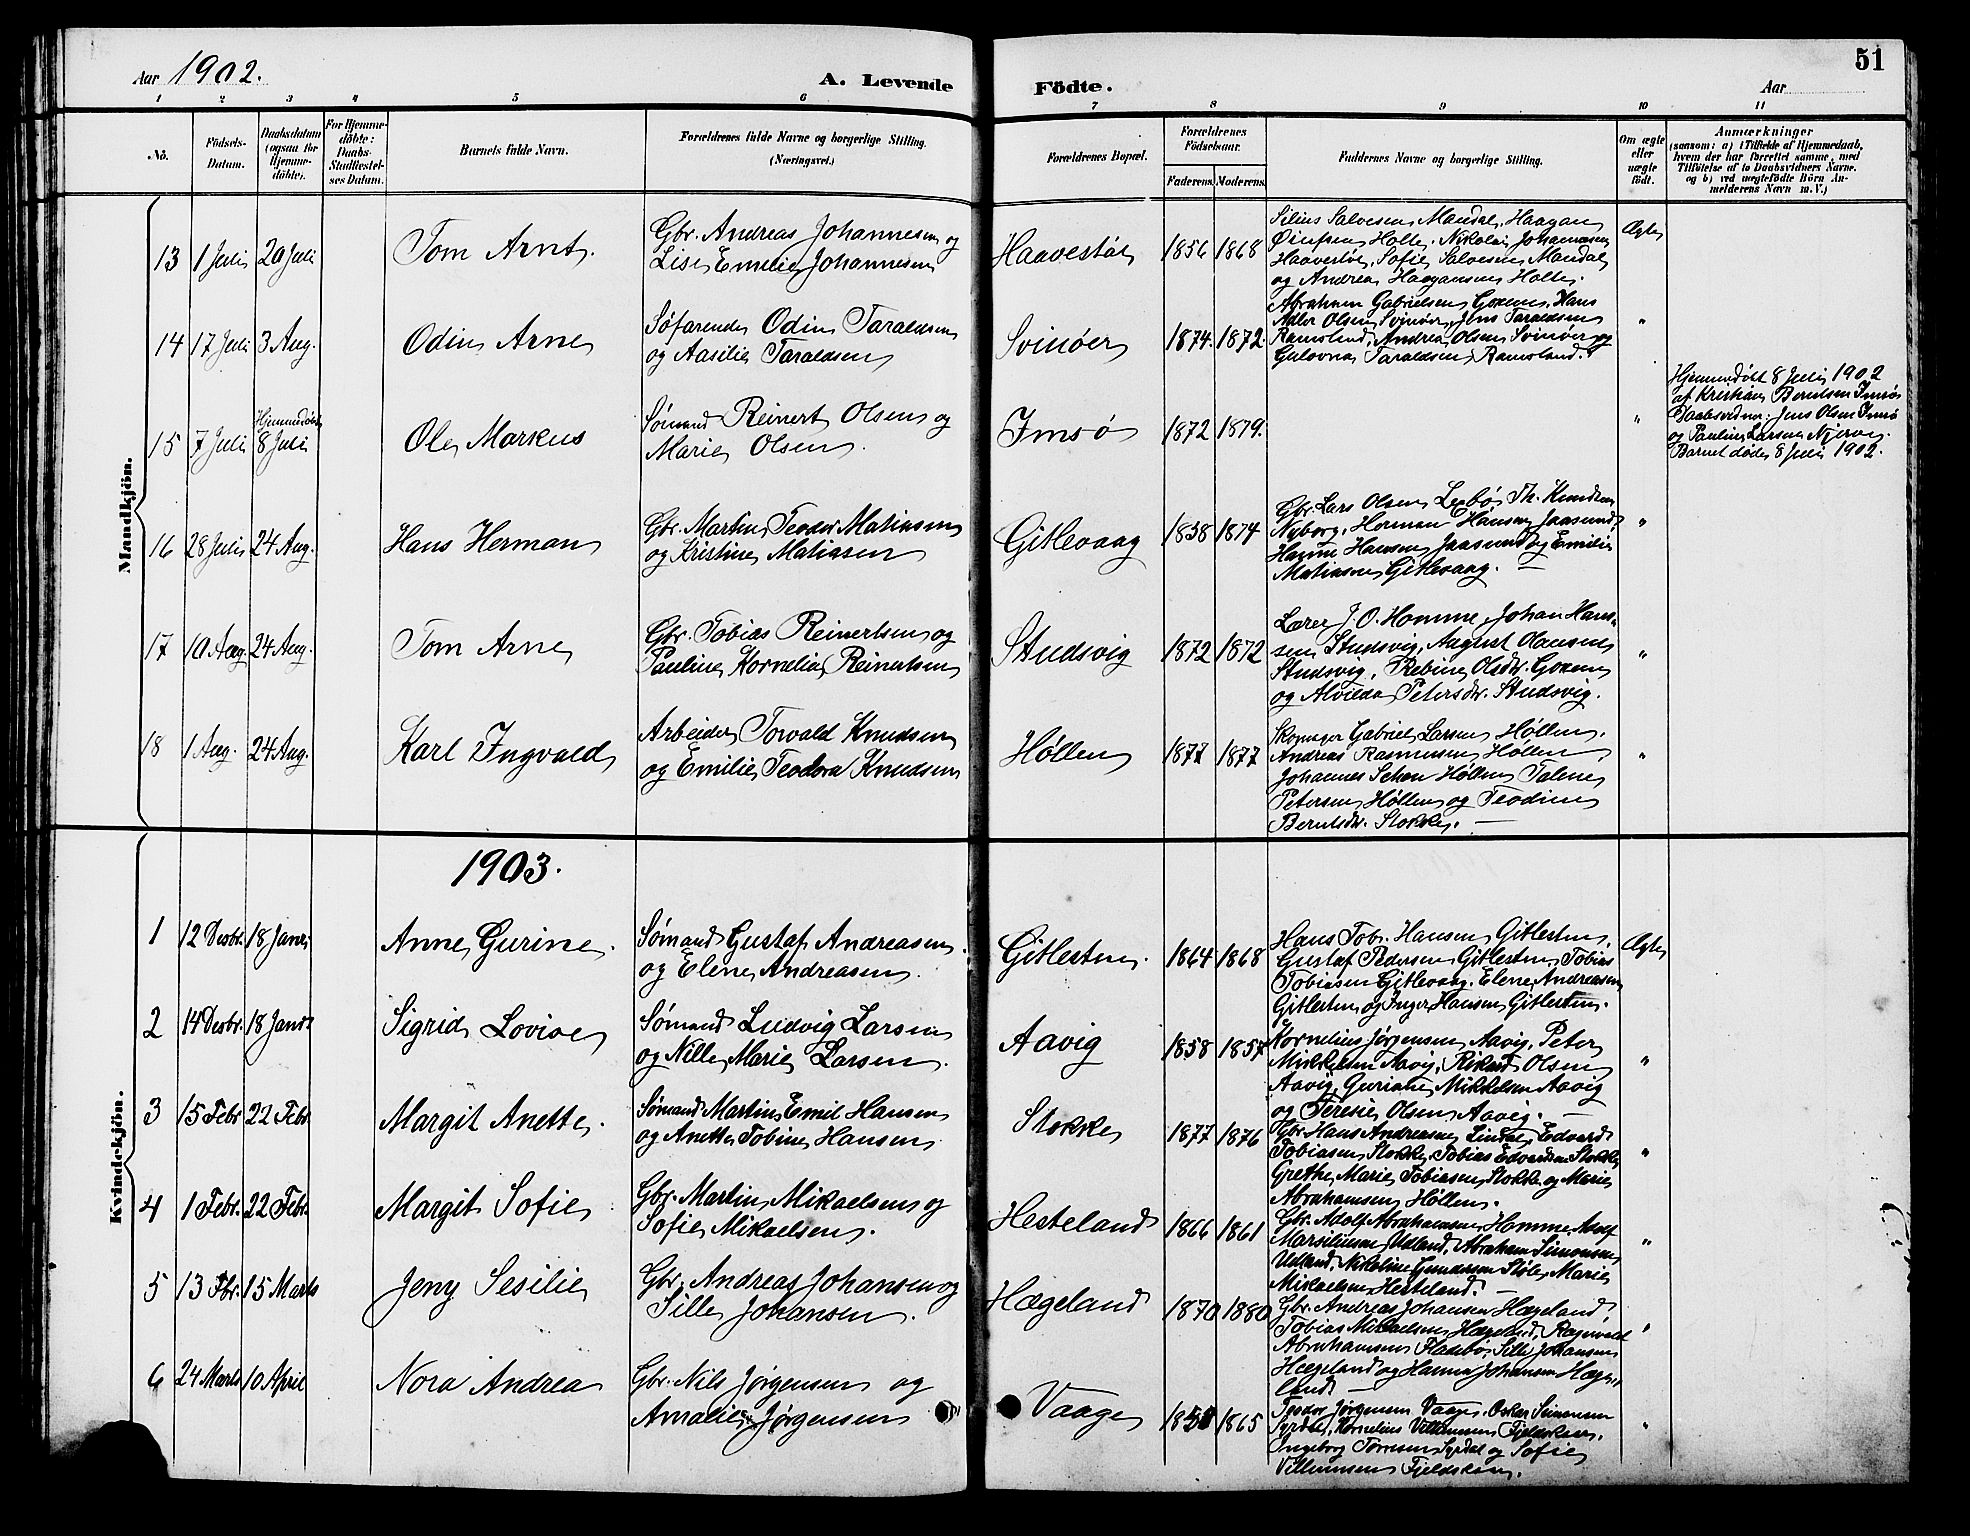 Aar 1902.
A. Levende
Födte.
Aar
51
1 2 3 4 5 6 7 8 9 10 11
No.
Födsels-
Datum.
Daabsdatum
(ogsaa for
Hjemme-
döbte).
For Hjemme-
döbte:
Daabs-
Stadfæstel-
ses Datum.
Barnets fulde Navn.
Forældrenes fulde Navne og borgerlige Stilling.
(Næringsvei.)
Forældrenes Bopæl.
Forældrenes
Födselsaar.
Faderens. Moderens.
Faddernes Navne og borgerlige Stilling.
Om ægte
eller
uægte
født.
Anmærkninger
(saasom: a) i Tilfælde af Hjemmedaab,
hvem der har forrettet samme, med
Tilföielse af to Daabsvidners Navne.
og b) ved uægtefödte Börn An-
melderens Navn m. V.)
Mandkjön.
13 1 Juli 20 Juli
Tom Arnt.
Gbr. Andreas Johannesen og
Lise Emelie Johannesen
Haavestøl 1856 1868
Silius Salvesen Mandal, Haagan
Øinfsen Holte, Nikolai Johannesen
Haavestøl, Sofie Salvesen Mandal
og Andrea Haagansen Holte.
Ægte
14 17 Juli 3 Aug.
Odin Arne
Søfarende Odin Taraldsen
og Aasilie Taraldsen
Svinøer 1874. 1872.
Abraham Gabrielsen Goxem, Hans
Adler Olsen Svinøer, Jens Taraldsen
Ramsland, Andrea Olsen Svinøer og
Gulovna Taraldsen Ramsland.
"
15 7 Juli
Hjemmedøbt
8 Juli
Ole Markus
Sømand Reinert Olsen og
Marie Olsen.
Imsø 1872 1879.
"
Hjemmedøbt 8 Juli 1902
af Kristian Berntsen Imsø
Daabsvidner: Jens Olsen Imsø
og Pauline Larsen Njerve.
Barnet døde 8 Juli 1902.
16 28 Juli 24 Aug.
Hans Herman
Gbr. Martin Teodor Matiasen
og Kristine Matiasen
Gitlevaag 1838 1874
Gbr. Lars Olsen Lebø, Th. Knudsen
Nyborg, Herman Hansen Jaasund,
Hanne Hansen Jaasund og Emilie
Matiasen Gitlevaag. —
"
17 10 Aug. 24 Aug.
Tom Arne
Gbr. Tobias Reinertsen og
Pauline Kornelia Reinertsen
Studsvig 1872 1872
Lærer J. O. Homme, Johan Han-
sen Studsvig, August Olausen
Studsvig, Rebine Olsdtr. Goxem
og Alvilda Petersdtr. Studsvig.
"
18 1 Aug. 24 Aug.
Karl Ingvald
Arbeider Torvald Knudsen
og Emilie Teodora Knudsen
Høllen 1877 1877
Skomager Gabriel Larsen Høllen,
Andreas Rasmussen Høllen,
Johannes Schøn Høllen, Talene
Petersen Høllen og Teodine
Berntsdtr. Stokke. —
"
1903.
Kvindekjön.
1 12 Desbr. 18 Janr.
Anne Gurine.
Sømand Gustaf Andreasen.
og Elene Andreasen.
Gitlesten. 1864 1868
Hans Tob. Hansen Gitlesten,
Gustaf Pedersen Gitlesten, Tobias
Tobiasen Gitlevaag, Elene Andreasen
Gitlesten og Inger Hansen Gitlesten.
Ægte
2 14 Desbr. 18 Janr.
Sigrid Lovise
Sømand Ludvig Larsen
og Nille Marie Larsen.
Aavig 1858 1857
Kornelius Jørgensen Aavig, Peter
Mikkelsen Aavig, Rikard Olsen
Aavig, Guriane Mikkelsen Aavig
og Teresie Olsen Aavig. —
"
3 15 Febr. 22 Febr.
Margit Anette.
Sømand Martin Emil Hansen
og Anette Tobine Hansen
Stokke 1877 1876
Gbr. Hans Andreasen Lindal, Edvard
Tobiasen Stokke, Tobias Edvardsen Stokke
Grethe Marie Tobiasen Stokke og Marie
Abrahamsen Høllen.
"
4 1 Febr. 22 Febr.
Margit Sofie
Gbr. Martin Mikaelsen og
Sofie Mikaelsen.
Hesteland 1866 1861
Gbr. Adolf Abrahamsen Homme, Adolf
Marsiliussen Udland, Abraham Simonsen
Udland, Nikoline Gundersen Støle, Marie
Mikaelsen Hesteland. —
"
5 13 Fbr. 15 Marts
Jeny Sesilie
Gbr. Andreas Johansen og
Sille Johansen.
Hægeland 1870 1880
Gbr. Andreas Johansen Hægeland
Tobias Mikaelsen Hægeland, Ragnvald
Abrahamsen Fladebø, Sille Johansen
Hægeland og Hanna Johansen Hæge-
land —
"
6 24 Marts 10 April
Nora Andrea
Gbr. Nils Jørgensen og
Amalie Jørgensen
Vaage 1865
Teodor Jørgensen Vaage, Oskar Simonsen
Syrdal, Kornelius Villumsen Fjeldskaar,
Ingeborg Tønnesen Syrdal og Sofie
Villumsen Fjeldskaar.
"